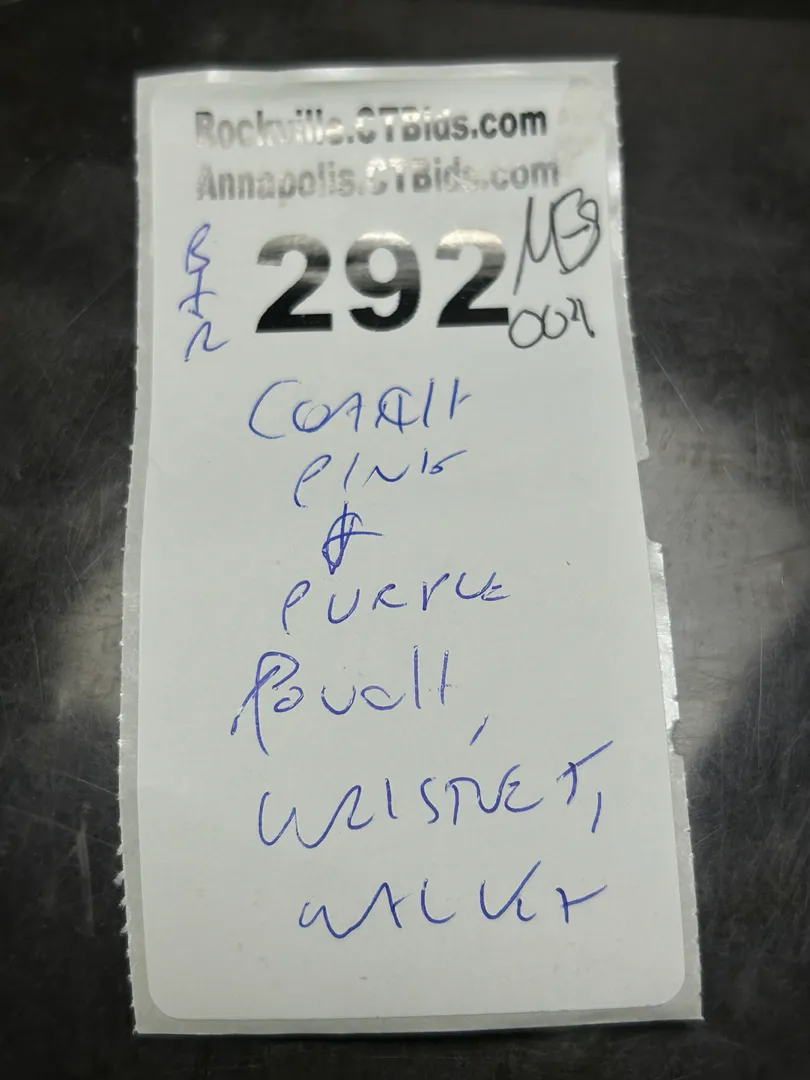 Rockville.CTBids.com
Annapolis.CTBids.com
292
PINK
&
PURPLE
POUCH,
WRISTLET,
WALLET